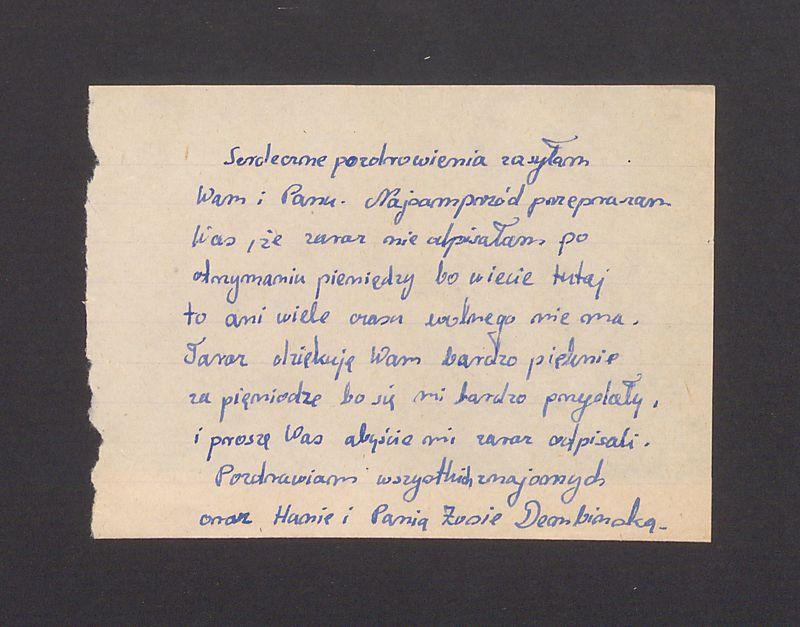 Serdeczne pozdrowienia zasyłam
Wam i Panu. Najsamprzód przepraszam
Was, że zaraz nie odpisałam po
otrzymaniu pieniędzy bo wiecie tutaj
to ani wiele czasu wolnego nie ma.
Zaraz dziękuję Wam bardzo pięknie
za pieniodze bo się mi bardzo przydały,
i proszę Was abyście mi zaraz odpisali.
Pozdrawiam wszystkich znajomych
oraz Hanie i Panią Zosie Dembinską.